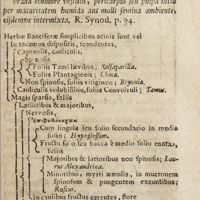 per maturitatem humida aut molli semina ambiente,
ejusdemve intermixta, R. Synod. p. 94.
Herbæ Bacciferæ simplicibus acinis sunt vel
In racemos dispositis, scandentes,
Capreolis, Cauliculis,
Spinosis
Foliis Tami lævibus; Salsaparilla.
Foliis Plantagineis; China.
Non spinosis, foliis vitigineis; Bryonia.
Cauliculis volubilibus, foliis Convolvuli; Tamus.
Magis sparsis, foliis
Latioribus & majoribus,
Nervosis,
Cum lingula seu folio secundario in medio
folio; Hypoglossum.
Fructu so o seu bacca è medio folio enata,
foliis
Majoribus & latioribus non spinosis; Lau-
rus Alexandrina.
Minoribus, myrti æmulis, in mucronem
spinosum & pungentem exeuntibus;
Ruscus.
fructus gerentes, flore